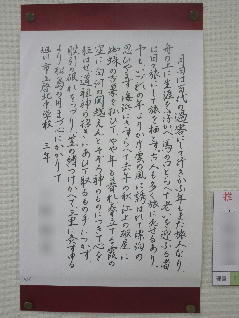 月日は百代の過客にして行きかふ年もまた旅人なり
舟の上に生涯を浮かべ馬の口とらへて老いを迎ふる者
は日々旅にして旅を栖とす古人も多く旅に死せるあり
予もいづれの年よりか片雲の風に誘はれて漂泊の
思ひやまず海浜にさすらへて去年の秋江上の破屋に
蜘蛛の古巣を払ひてやや年も暮れ春立てる霞の
空に白河の関越えんとそぞろ神のものにつきて心を
狂はせ道祖神の招きにあひて取るもの手につかず
股引の破れをつづり笠の緒つけかへて三里に灸すゆる
より松島の月まづ心にかかりて
旭川市立啓北中学校 三年